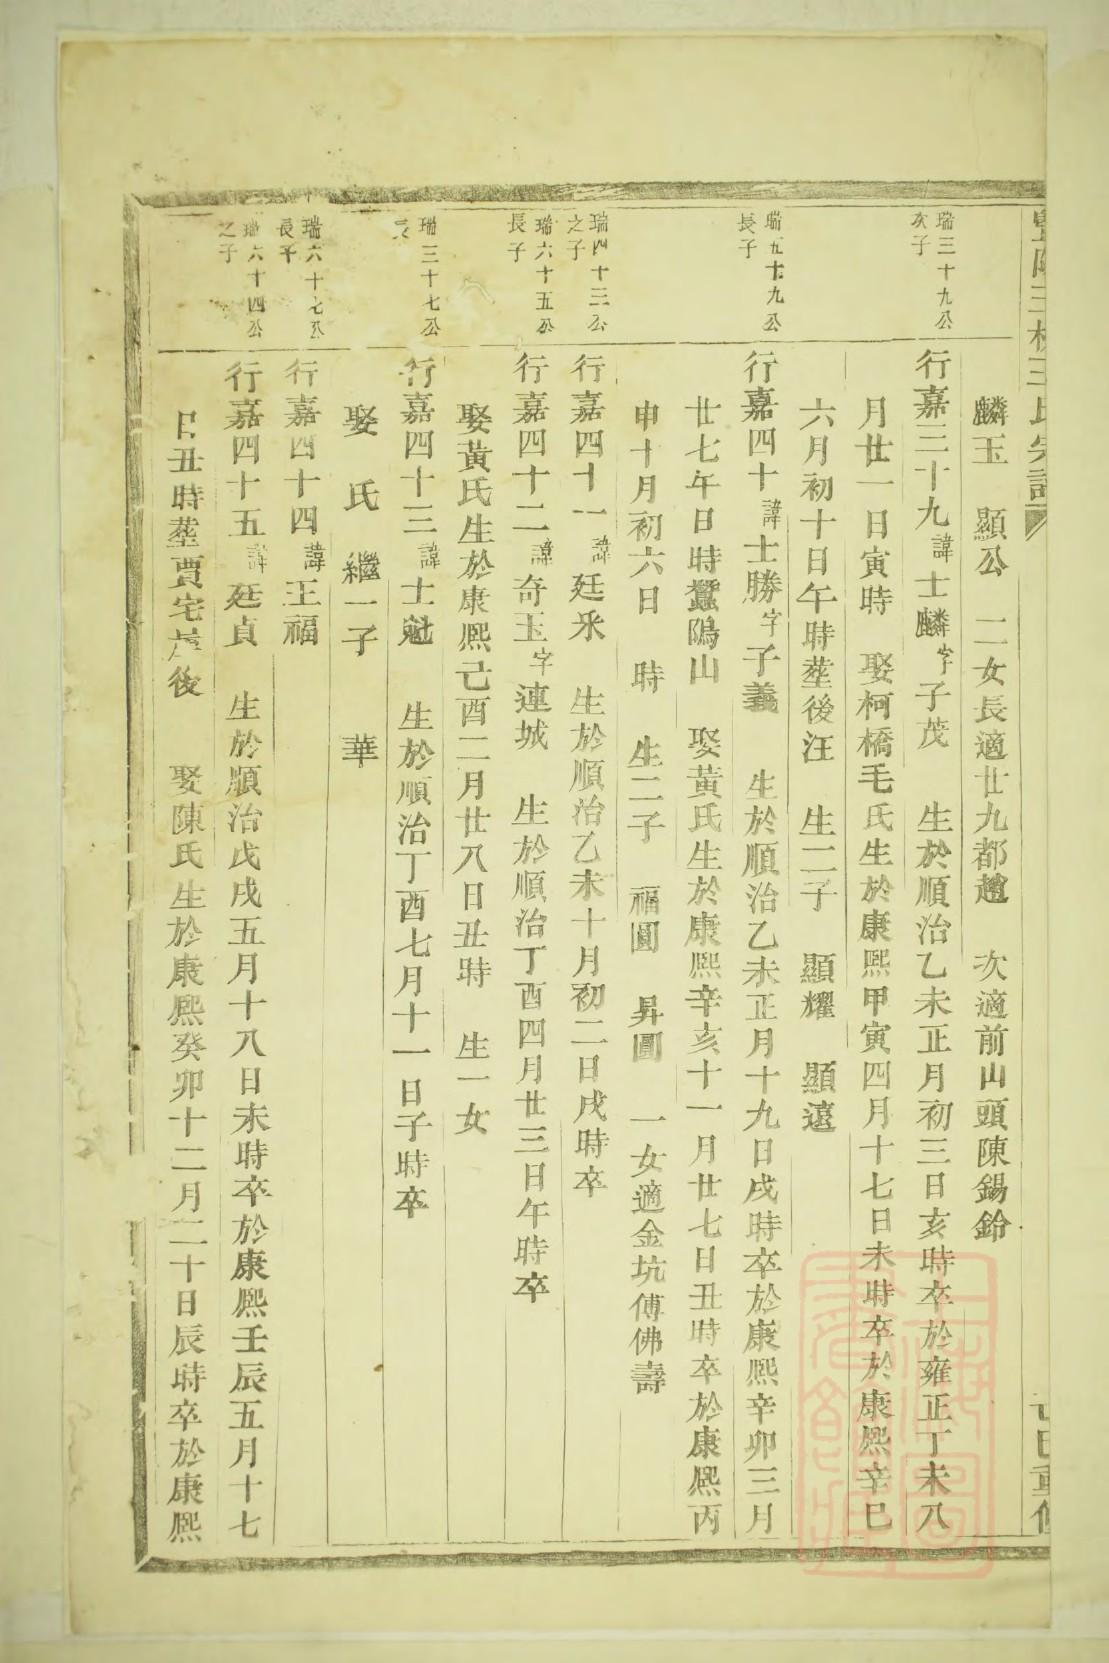 麟玉　顯公　二女長適廿九都趙　次適前山頭陳錫鈴
瑞三十九公
次子
行嘉三十九諱士麟字子茂　生於順治乙未正月初三日亥時卒於雍正丁未八
月廿一日寅時　娶柯橋毛氏生於康熙甲寅四月十七日未時卒於康熙辛巳
六月初十日午時塟後汪　生二子　顯耀　顯遠
瑞五十九公
長子
行嘉四十諱士勝字子義　生於順治乙未正月十九日戌時卒於康熙辛卯三月
廿七午日時蠶隝山　娶黃氏生於康熙辛亥十一月廿七日丑時卒於康熙丙
申十月初六日　時　生二子　福圓　昇圓　一女適金坑傅佛壽
瑞四十三公
之子
行嘉四十一諱廷釆　生於順治乙未十月初二日戌時卒
瑞六十五公
長子
行嘉四十二諱奇玉字連城　生於順治丁酉四月廿三日午時卒
娶黃氏生於康熙己酉二月廿八日丑時　生一女
瑞三十七公
行嘉四十三諱士魁　生於順治丁酉七月十一日子時卒
娶　氏　繼一子　華
瑞六十七公
長子
行嘉四十四諱王福
瑞六十四公
之子
行嘉四十五諱廷貞　生於順治戊戌五月十八日未時卒於康熙壬辰五月十七
日丑時塟賈宅後　娶陳氏生於康熙癸卯十二月二十日辰時卒於康熙